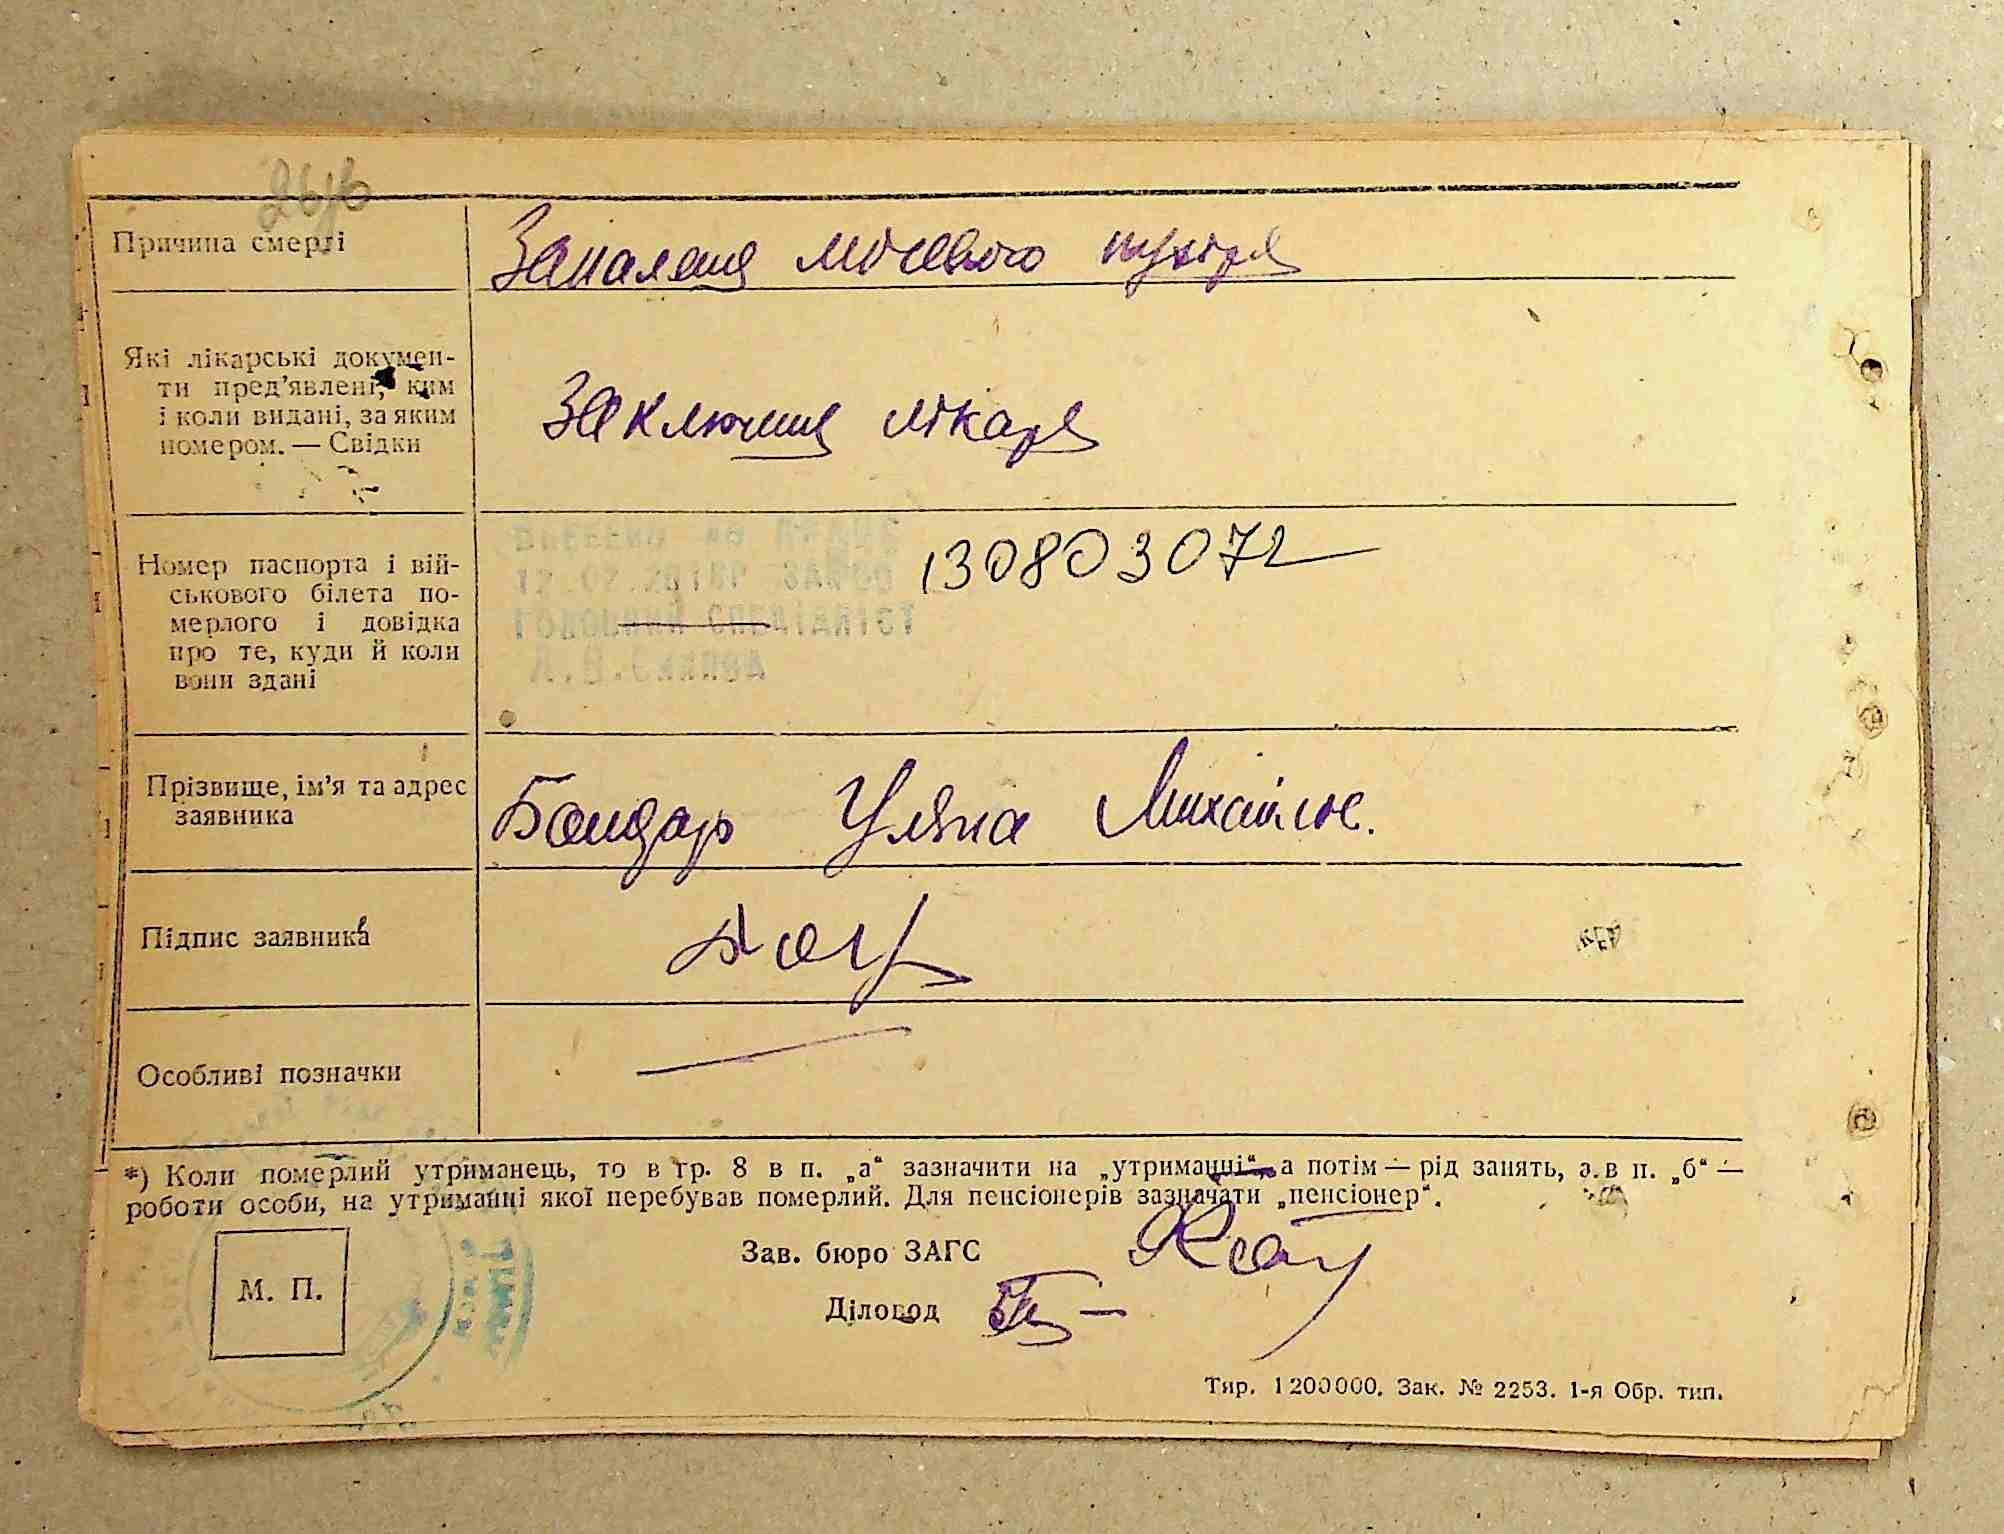 26
Причина смерті
Запалення мочевого пухіря
Які лікарські докумен-
ти пред'явлені, ким
і коли видані, за яким
номером. — Свідки
Заключення лікаря
Номер паспорта і вій-
ськового білета по-
мерлого і довідка
про те, куди й коли
вони здані
ВНЕСЕНО ДО
12.02.2016Р
ГОЛОВНИЙ СПЕЦІАЛІСТ
130803072
Прізвище, ім'я та адрес
заявника
Бондар Уляна Михайлов.
Підпис заявника
Особливі позначки
—
*) Коли померлий утриманець, то в гр. 8 в п. „а“ зазначити на „утриманні“, а потім — рід занять, а в п. „б“ —
роботи особи, на утриманні якої перебував померлий. Для пенсіонерів зазначати „пенсіонер“.
М. П.
Зав. бюро ЗАГС
Діловод
Тир. 1200000. Зак. № 2253. 1-я Обр. тип.